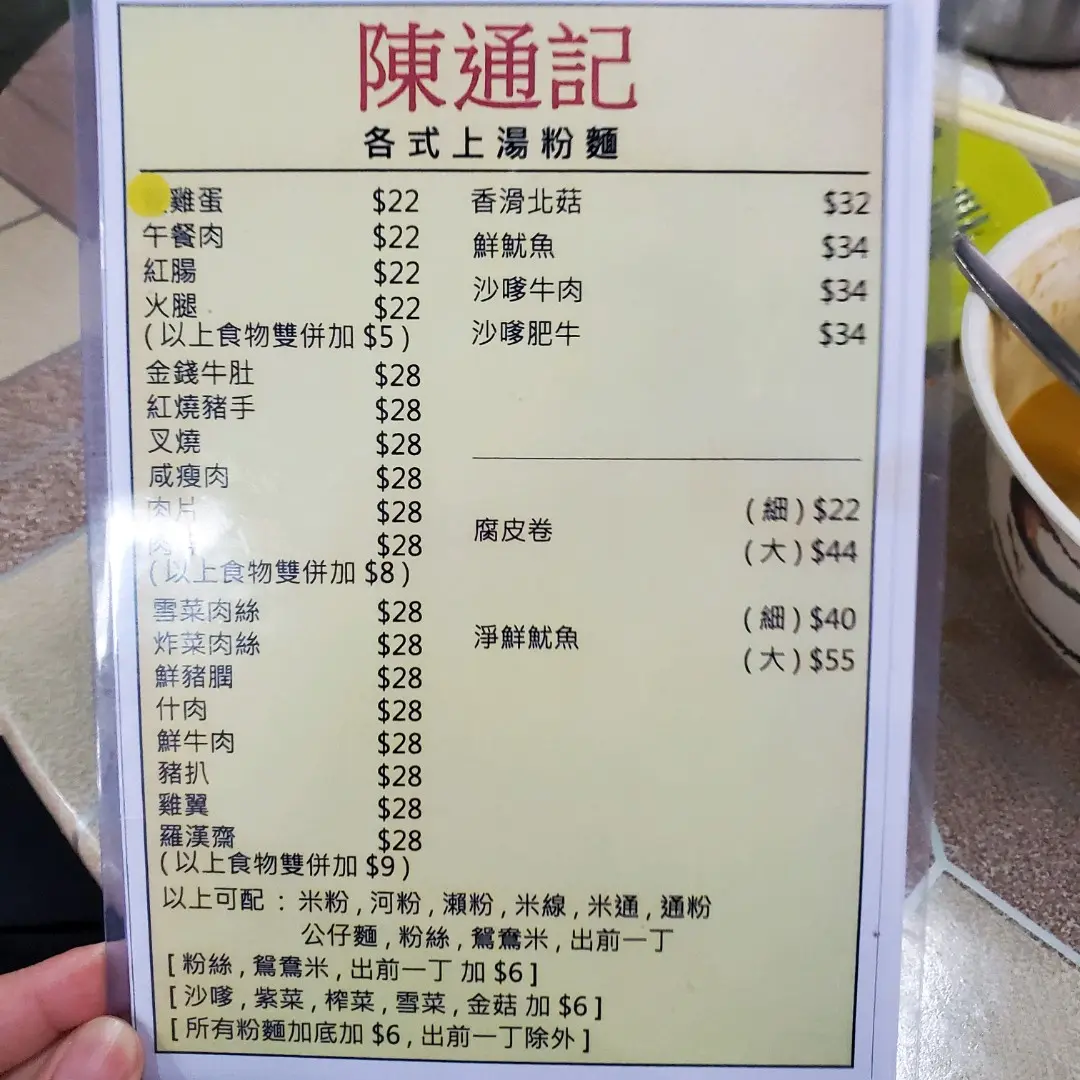 陳通記
各式上湯粉麵
雞蛋 $22
午餐肉 $22
紅腸 $22
火腿 $22
(以上食物雙併加 $5)
金錢牛肚 $28
紅燒豬手 $28
叉燒 $28
咸瘦肉 $28
肉片 $28
肉 $28
(以上食物雙併加 $8)
雪菜肉絲 $28
炸菜肉絲 $28
鮮豬膶 $28
什肉 $28
鮮牛肉 $28
豬扒 $28
雞翼 $28
羅漢齋 $28
(以上食物雙併加 $9)
香滑北菇 $32
鮮魷魚 $34
沙嗲牛肉 $34
沙嗲肥牛 $34
腐皮卷 (細) $22
(大) $44
淨鮮魷魚 (細) $40
(大) $55
以上可配 : 米粉 , 河粉 , 瀨粉 , 米線 , 米通 , 通粉
公仔麵 , 粉絲 , 鴛鴦米 , 出前一丁
[ 粉絲 , 鴛鴦米 , 出前一丁 加 $6 ]
[ 沙嗲 , 紫菜 , 榨菜 , 雪菜 , 金菇 加 $6 ]
[ 所有粉麵加底加 $6 , 出前一丁除外 ]